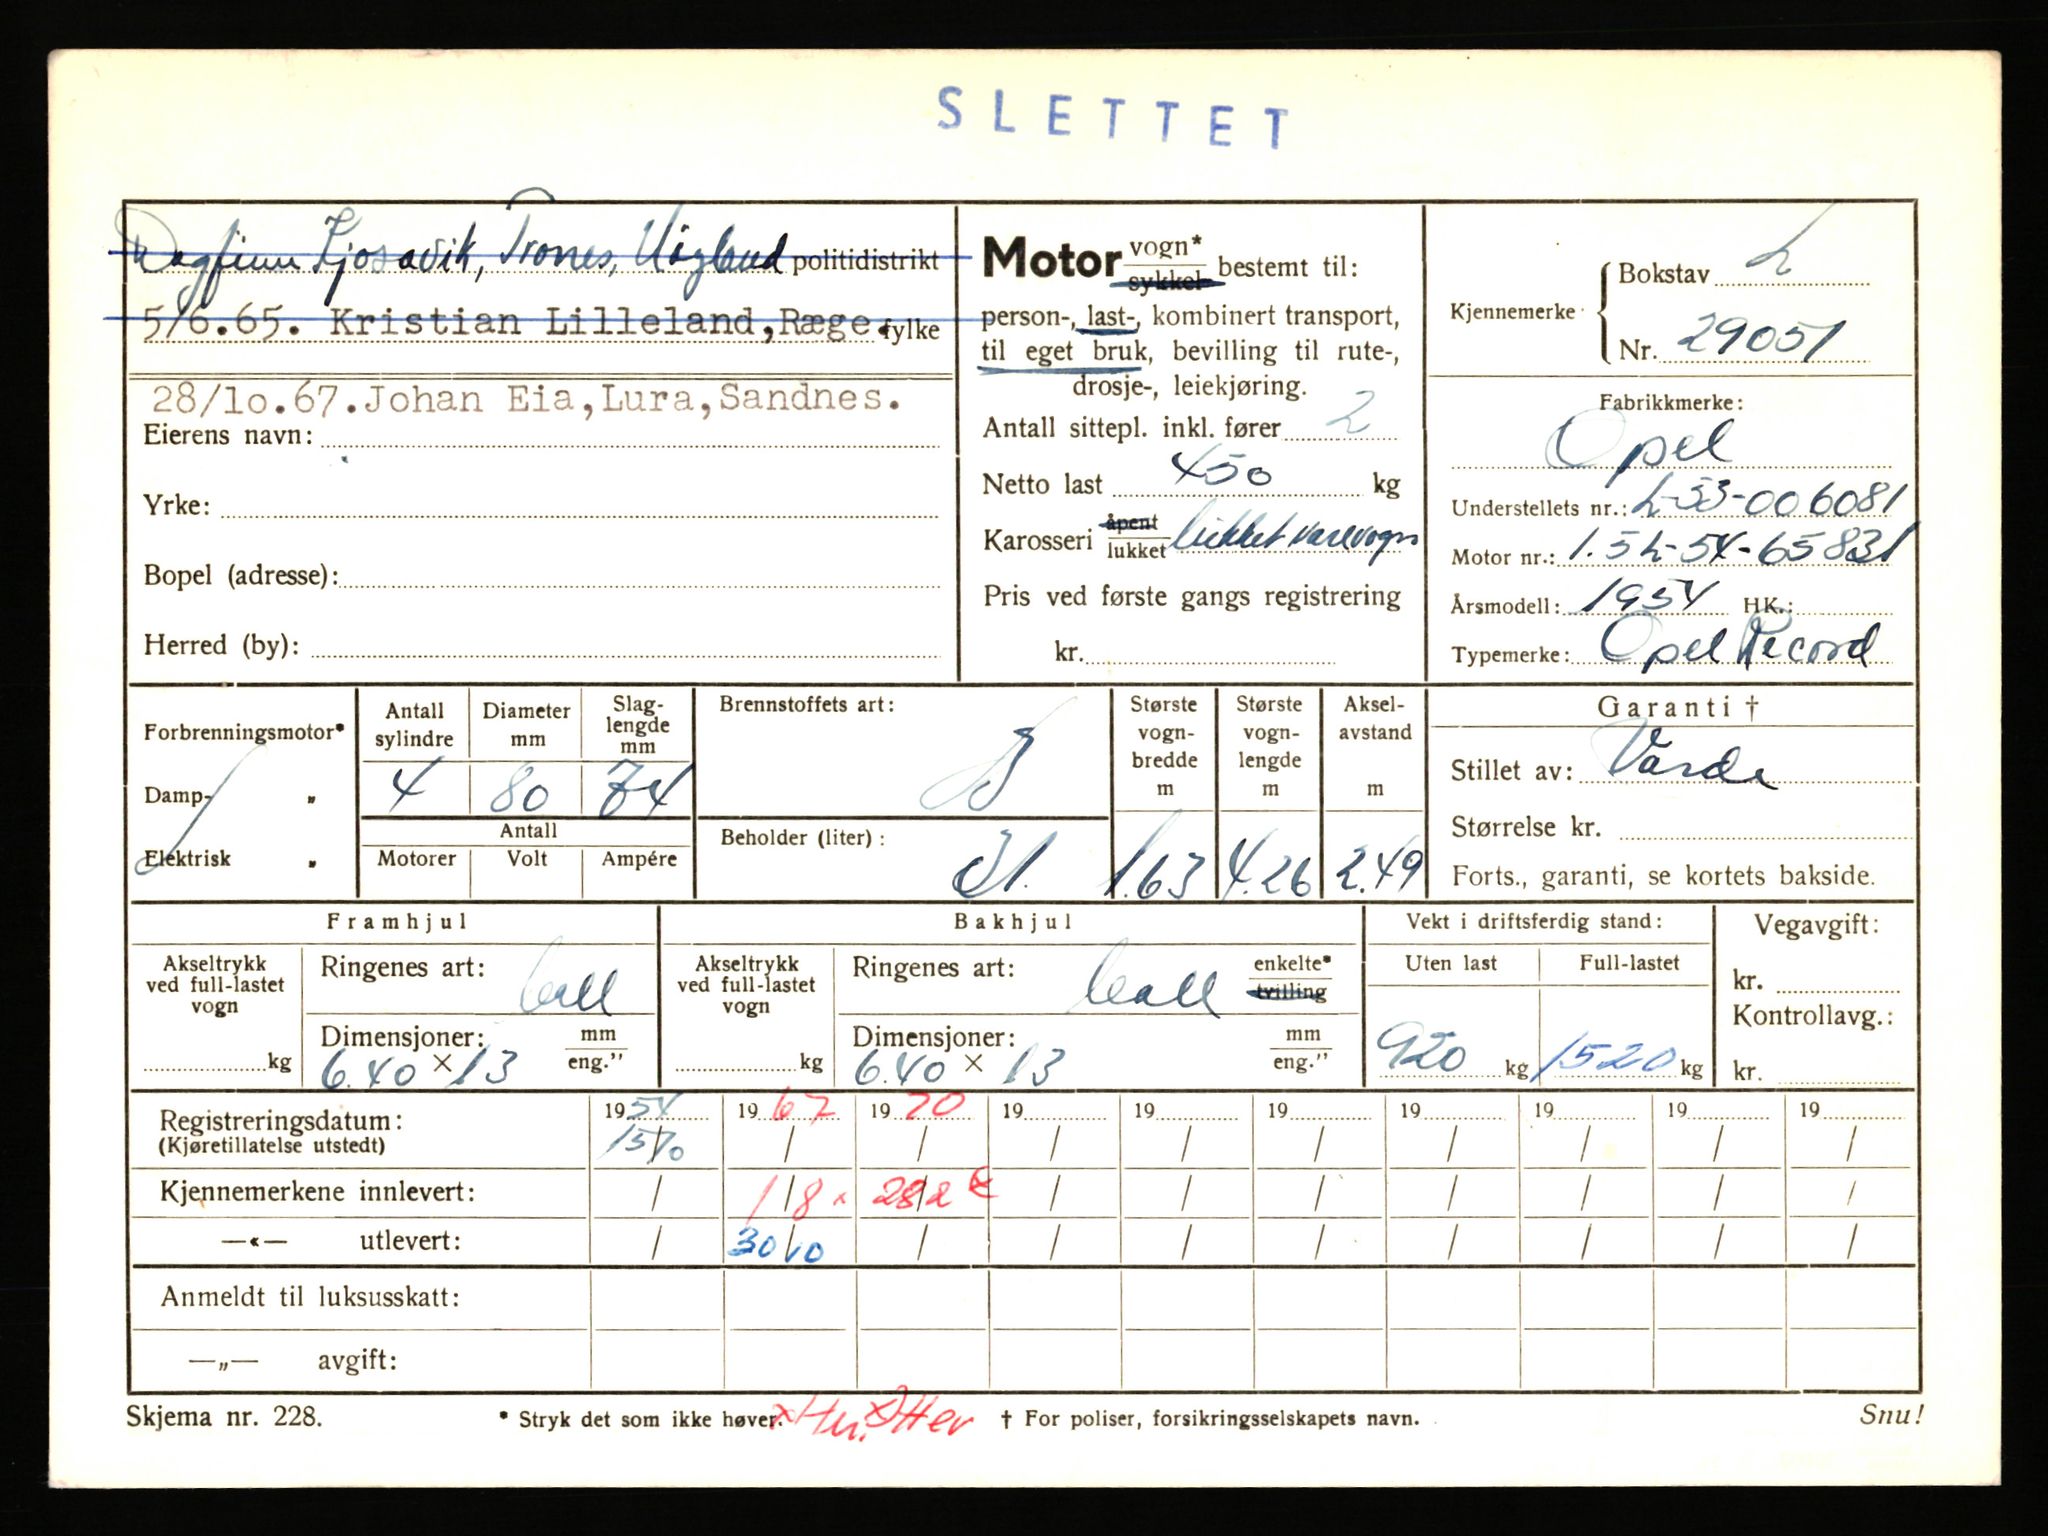 SLETTET
Dagfinn Kjosavik, Trones, Høgland politidistrikt
5/6.65. Kristian Lilleland, Ræge. fylke
28/1o.67. Johan Eia, Lura, Sandnes.
Eierens navn:
Yrke:
Bopel (adresse):
Herred (by):
Motor vogn* sykkel bestemt til:
person-, last-, kombinert transport,
til eget bruk, bevilling til rute-,
drosje-, leiekjøring.
Antall sittepl. inkl. fører 2
Netto last 450 kg
Karosseri åpent lukket lukket varevogn
Pris ved første gangs registrering
kr.
Kjennemerke Bokstav L
Nr. 29051
Fabrikkmerke:
Opel
Understellets nr.: L-53-006081
Motor nr.: 1.5L-54-65831
Årsmodell: 1954 HK.:
Typemerke: Opel Record
Forbrenningsmotor*
Damp- „
Elektrisk „
Antall sylindre 4
Diameter mm 80
Slag-lengde mm 74
Antall
Motorer Volt Ampére
Brennstoffets art: B
Beholder (liter): 31.
Største vogn-bredde m 1.63
Største vogn-lengde m 4.26
Aksel-avstand m 2.49
Garanti †
Stillet av: Varde
Størrelse kr.
Forts., garanti, se kortets bakside.
Framhjul
Akseltrykk ved full-lastet vogn kg
Ringenes art:
Dimensjoner: mm eng."
6.40 × 13
Bakhjul
Akseltrykk ved full-lastet vogn kg
Ringenes art: enkelte* tvilling
Dimensjoner: mm eng."
6.40 × 13
Vekt i driftsferdig stand:
Uten last Full-lastet
920 kg 1520 kg
Vegavgift:
kr.
Kontrollavg.:
kr.
Registreringsdatum: 1954 1967 1970 19 19 19 19 19 19 19
(Kjøretillatelse utstedt) 15/10 / / / / / / / / /
Kjennemerkene innlevert: / 1/8 × 28/2 / / / / / / /
—«— utlevert: / 30/10 / / / / / / / /
Anmeldt til luksusskatt:
—„— avgift:
Skjema nr. 228. * Stryk det som ikke høver. † For poliser, forsikringsselskapets navn. Snu!